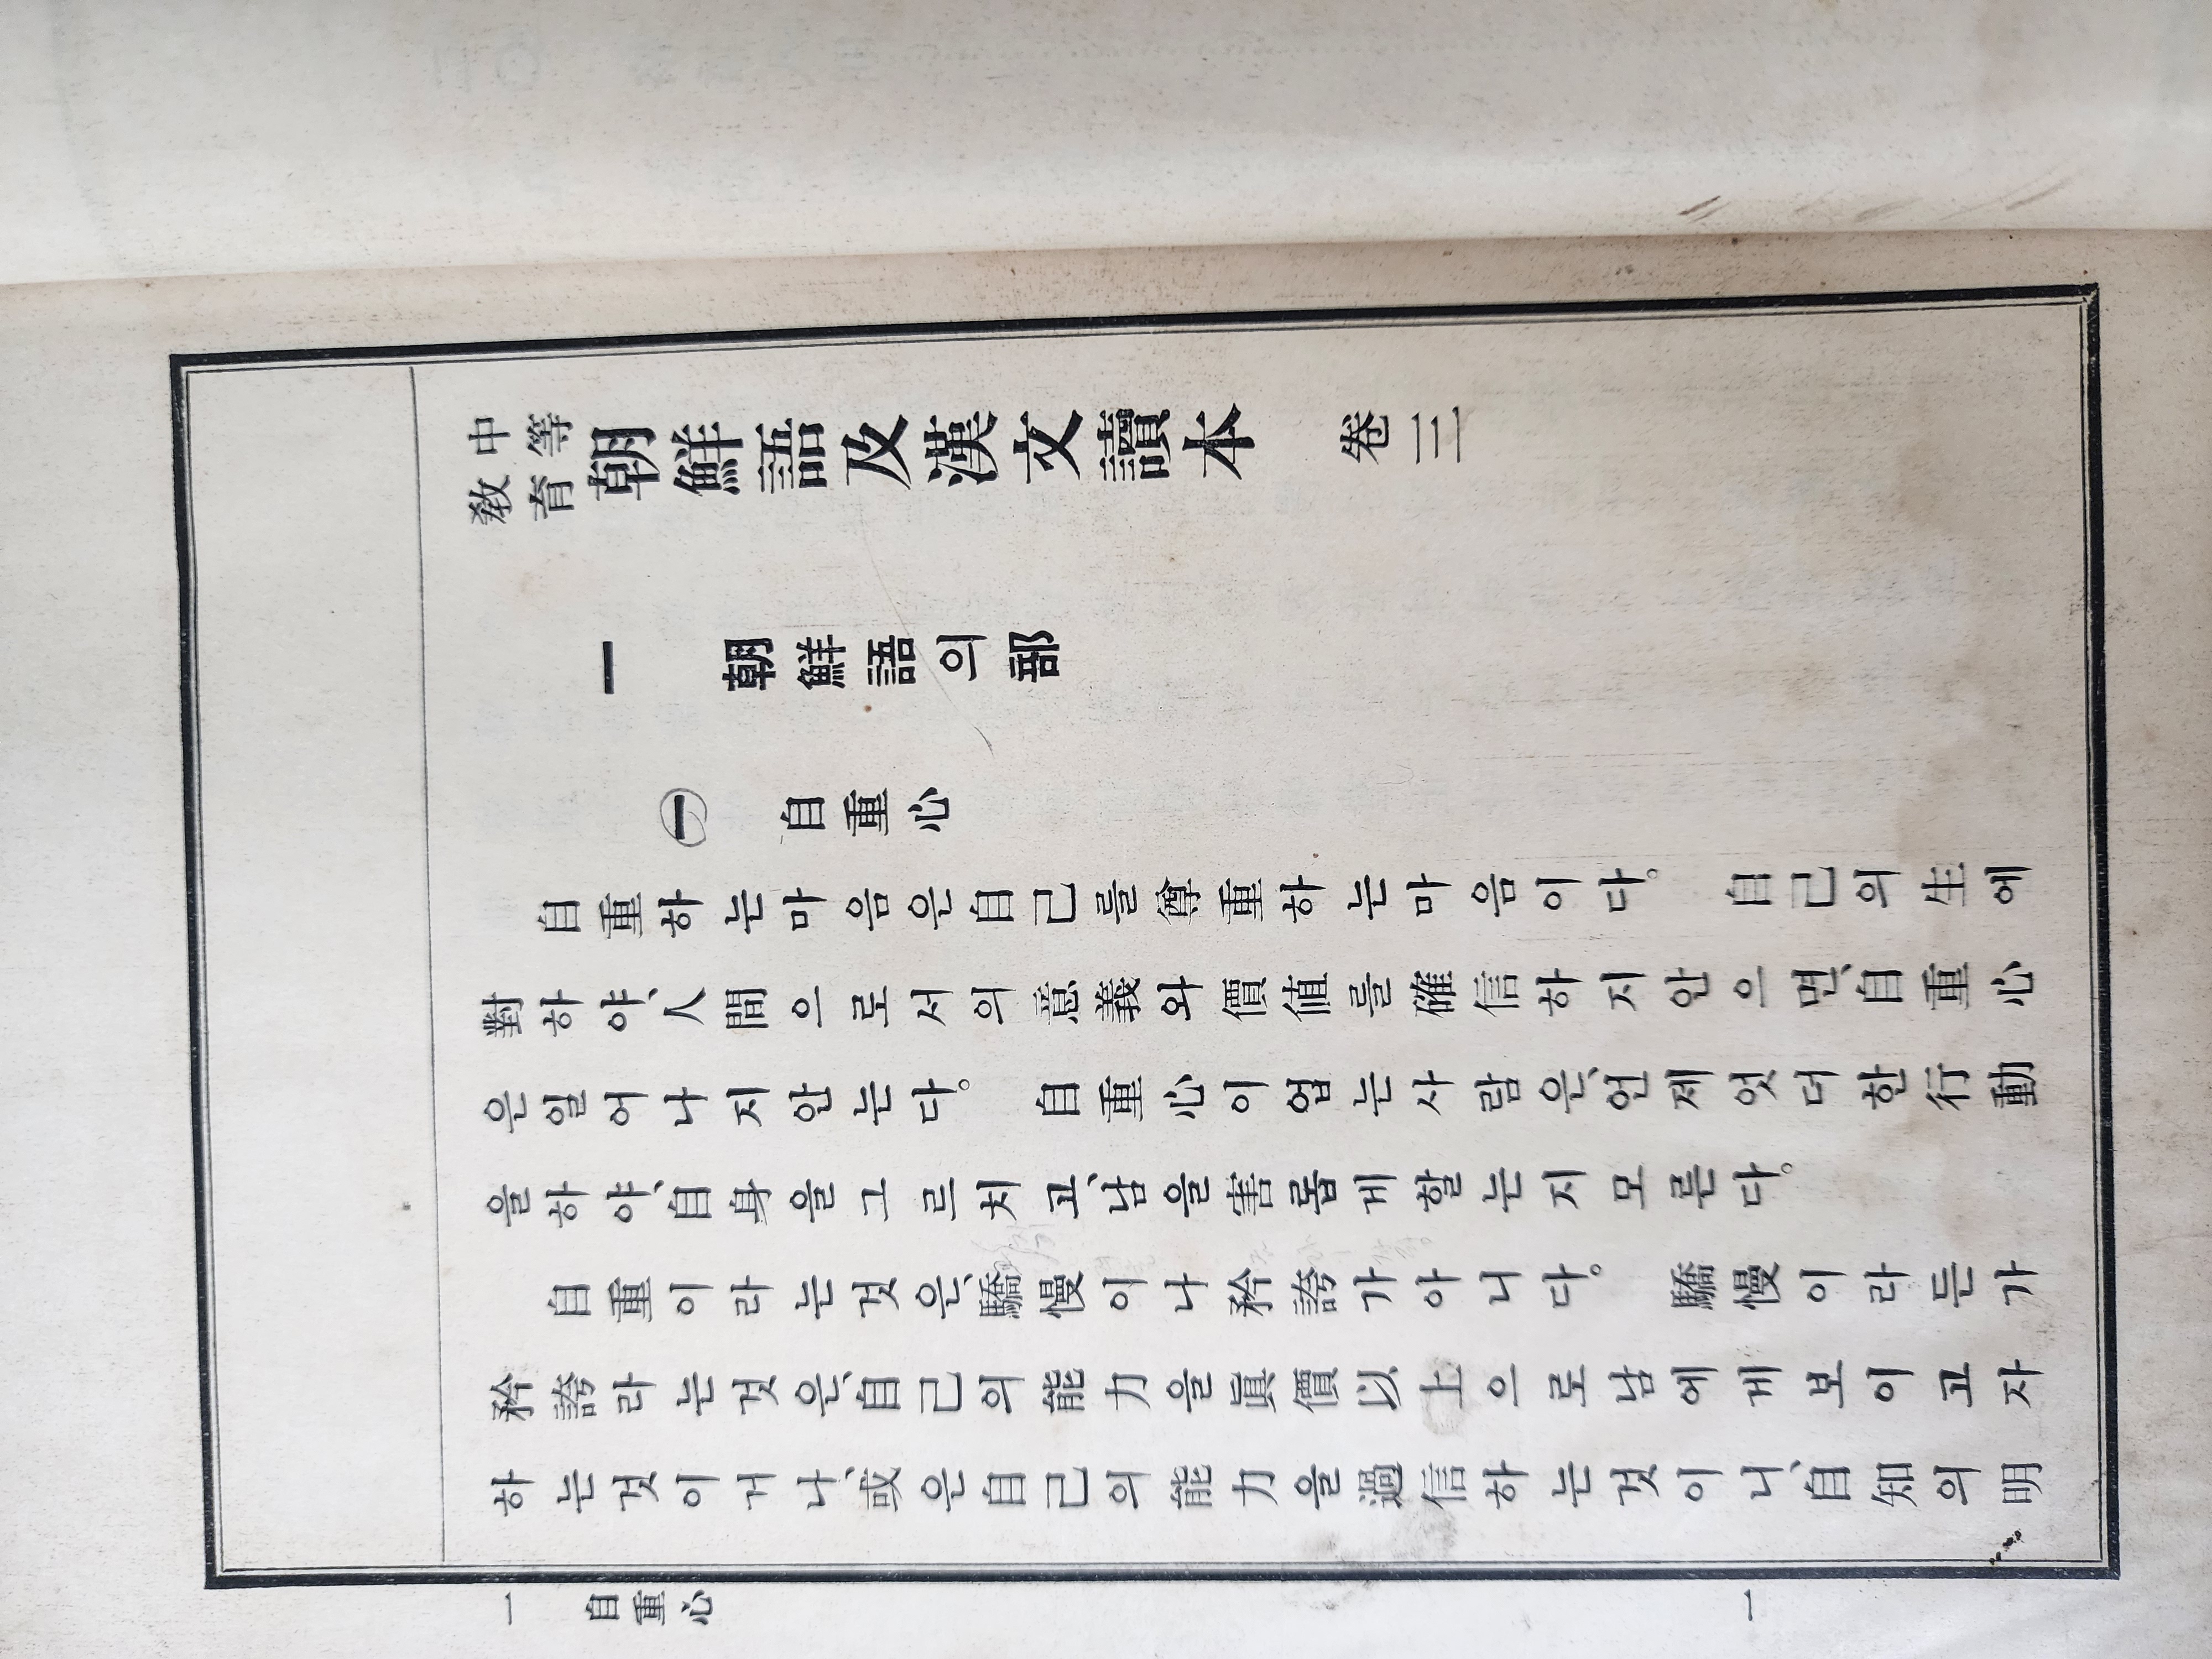 中等教育 朝鮮語及漢文讀本 卷三
一 朝鮮語의部
一 自重心
自重하는마음은自己를尊重하는마음이다。 自己의生에
對하야、人間으로서의意義와價値를確信하지안으면、自重心
은일어나지안는다。 自重心이업는사람은、언제엇더한行動
을하야、自身을그르치고、남을害롭게할는지모른다。
自重이라는것은、驕慢이나矜誇가아니다。 驕慢이라든가
矜誇라는것은、自己의能力을眞價以上으로남에게보이고자
하는것이거나、或은自己의能力을過信하는것이니、自知의明
一 自重心
一